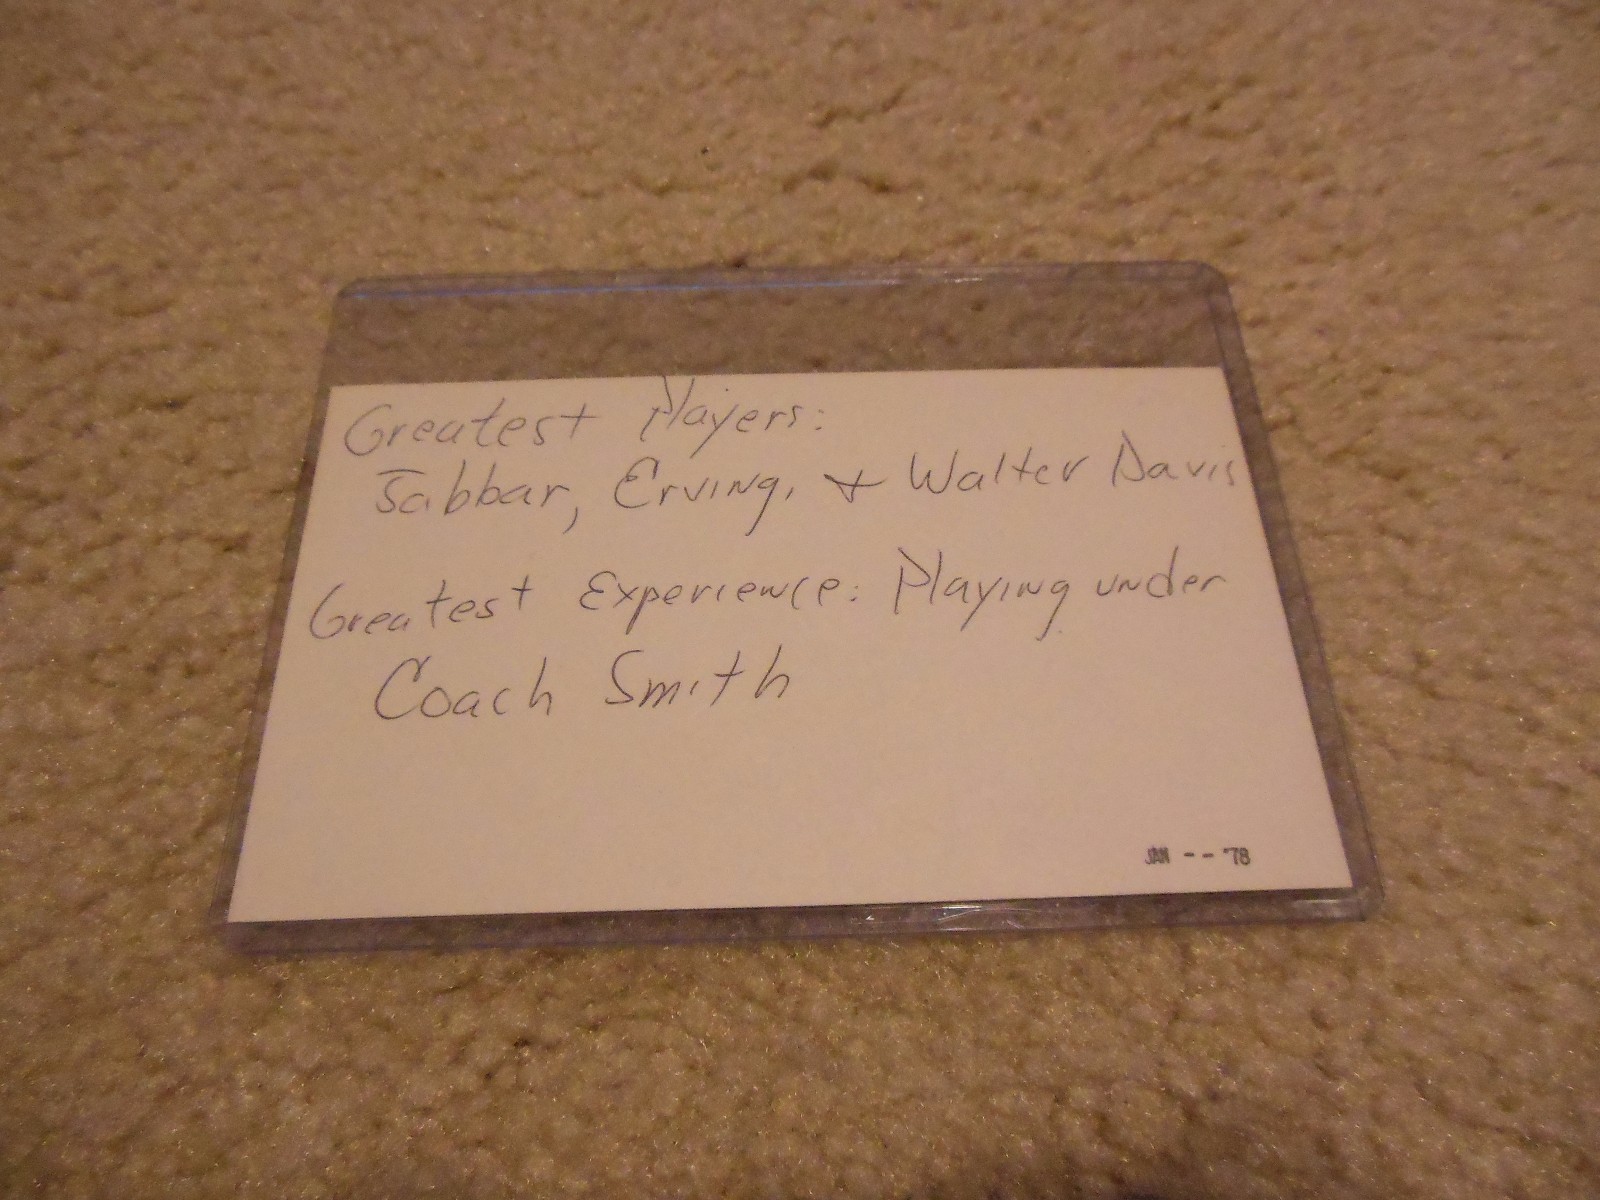 Greatest Players:
Jabbar, Erving, + Walter Davis
Greatest Experience: Playing under
Coach Smith
JAN -- '78